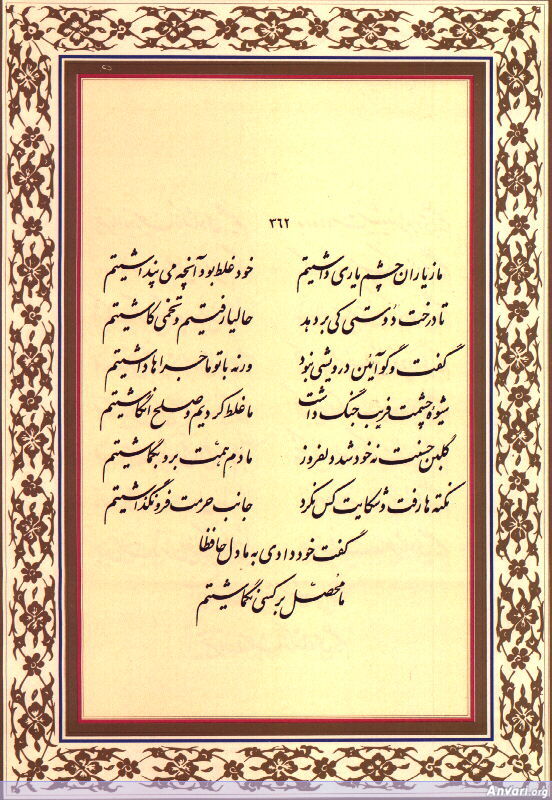 ۳۶۲
ما ز یاران چشم یاری داشتیم خود غلط بود آنچه می پنداشتیم
تا درخت دوستی کی بر دهد حالیا رفتیم و تخمی کاشتیم
گفت و گو آئین درویشی نبود ورنه با تو ماجراها داشتیم
شیوه چشمت فریب جنگ داشت ما غلط کردیم و صلح انگاشتیم
گلبن حسنت نه خود شد دلفروز ما دم همّت برو بگماشتیم
نکته ها رفت و شکایت کس نکرد جانب حرمت فرو نگذاشتیم
گفت خود دادی به ما دل حافظا
ما محصّل بر کسی نگماشتیم
Anvari.org